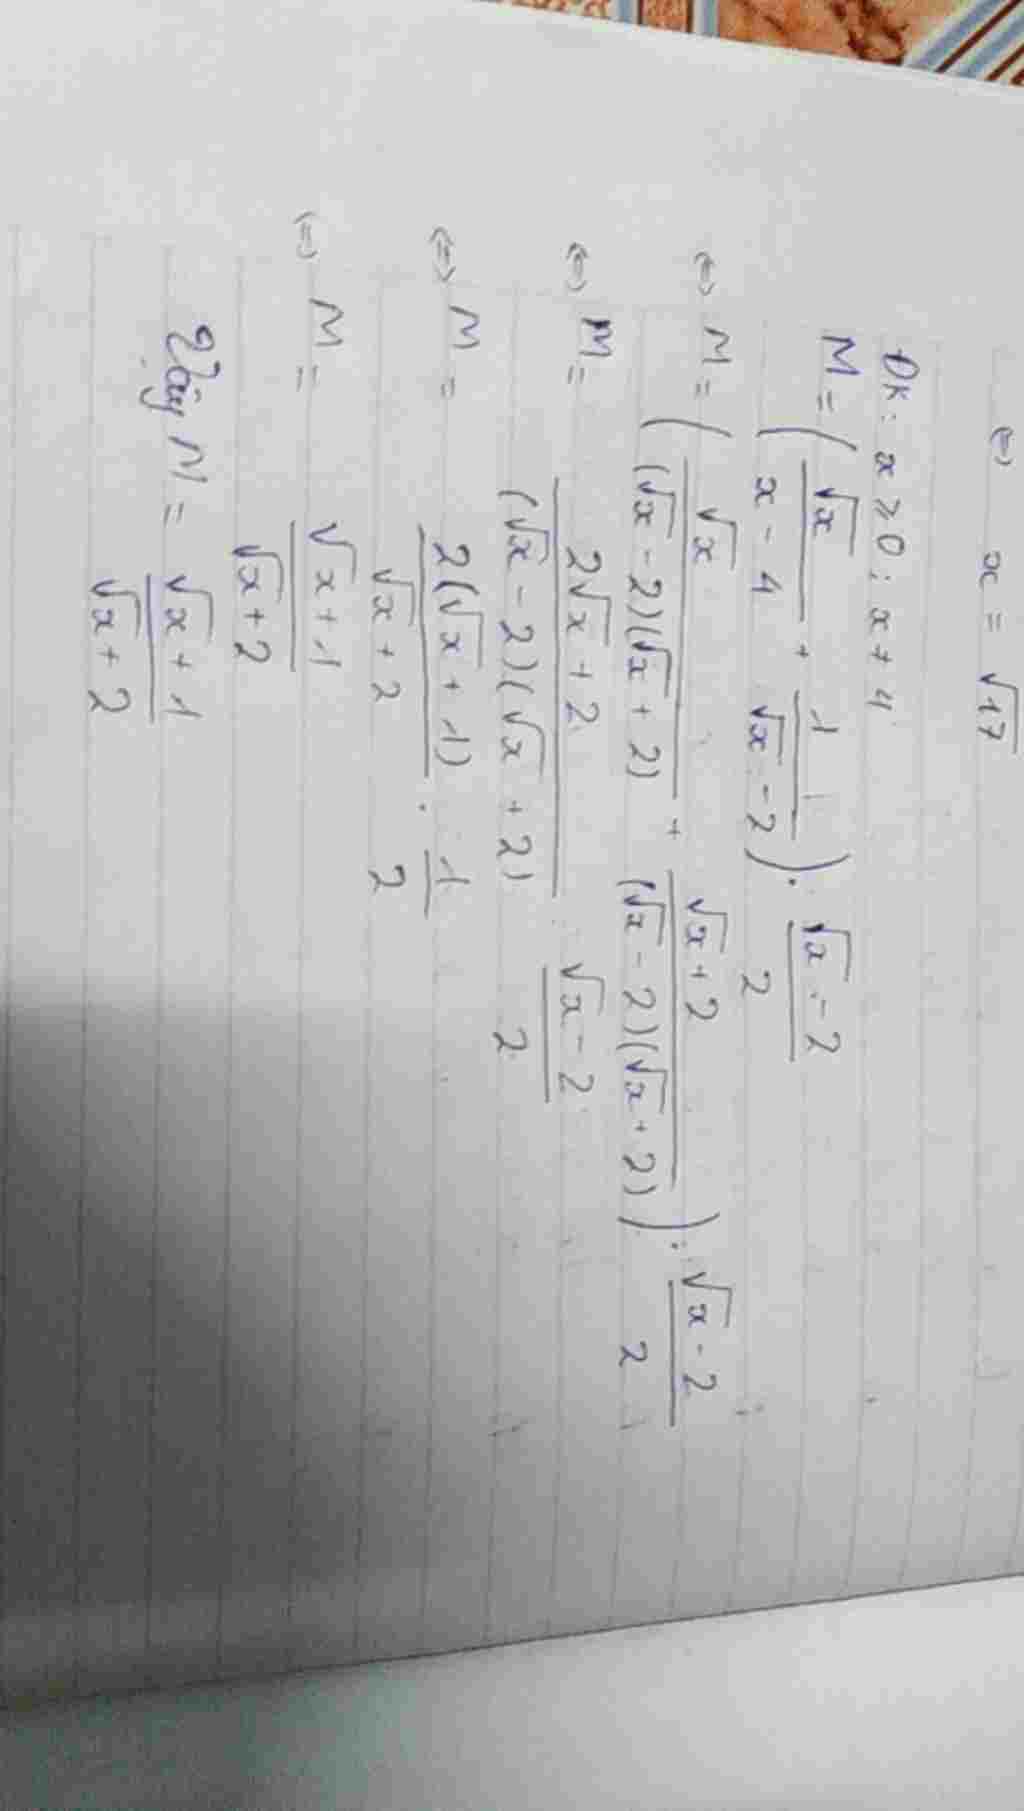 (=) x = √17
ĐK: x ≥ 0; x ≠ 4
M = (√x / (x - 4) + 1 / (√x - 2)) . (√x - 2) / 2
(=) M = (√x / ((√x - 2)(√x + 2)) + (√x + 2) / ((√x - 2)(√x + 2))) . (√x - 2) / 2
(=) M = (2√x + 2) / ((√x - 2)(√x + 2)) . (√x - 2) / 2
(=) M = 2(√x + 1) / (√x + 2) . 1 / 2
(=) M = (√x + 1) / (√x + 2)
Vậy M = (√x + 1) / (√x + 2)